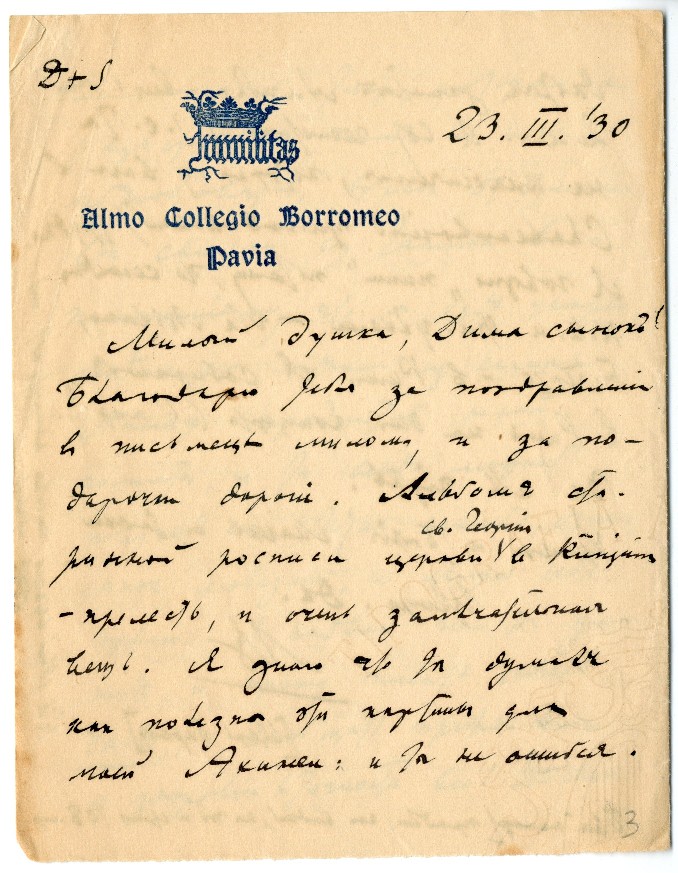 D + S
Humilitas
23. III. '30
Almo Collegio Borromeo
Pavia
Милый душка, Дима сынокъ!
Благодарю тебя за поздравленія
в письмецѣ миломъ, и за по-
дарочек дорогой. Альбомъ ста-
ринной росписи церкви св. Георгія в
- прелесть, и очень замѣчательная
вещь. Я знаю что ты думаешь
как полезны эти картины для
моей : и ты не ошибся.
3